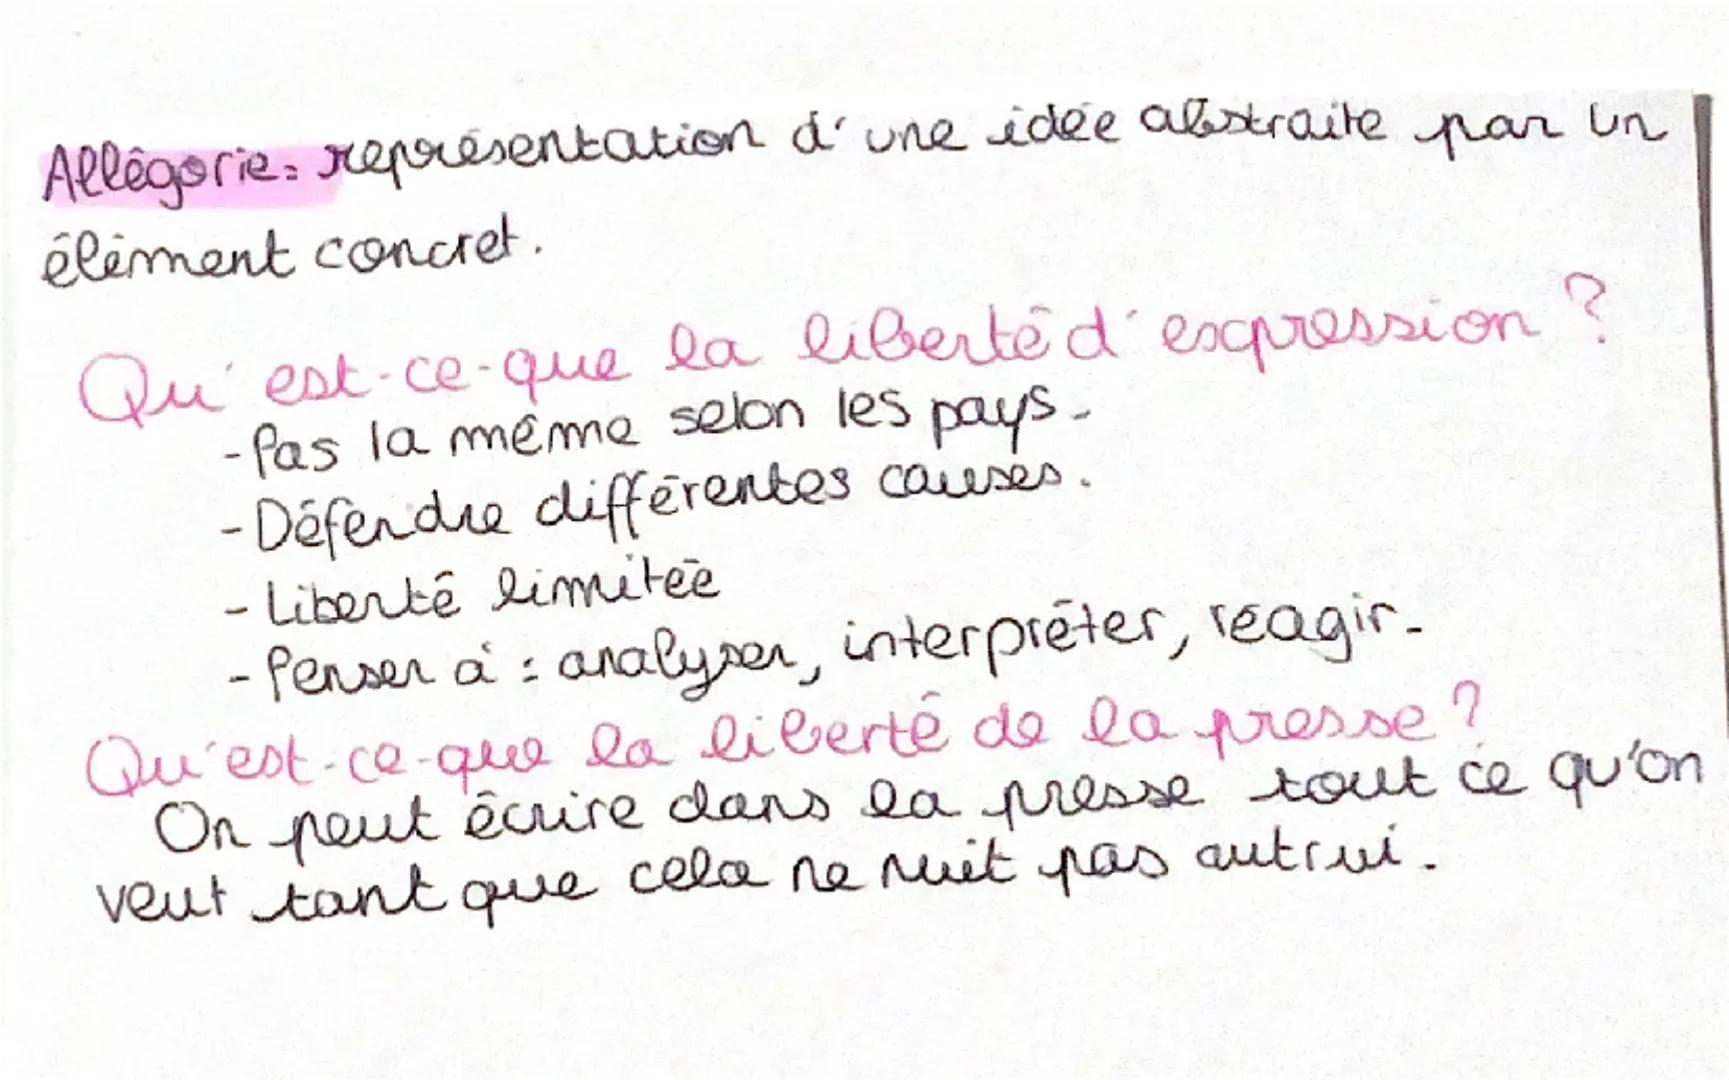 Allégorie: représentation d'une idée abstraite par un
élément concret.
Qu'est-ce-que la liberté d'expression ?
- Pas la même selon les pays.
- Défendre différentes causes.
- Liberté limitée
- Penser à : analyser, interpréter, réagir.
Qu'est-ce-que la liberté de la presse ?
On peut écrire dans la presse tout ce qu'on
veut tant que cela ne nuit pas autrui.